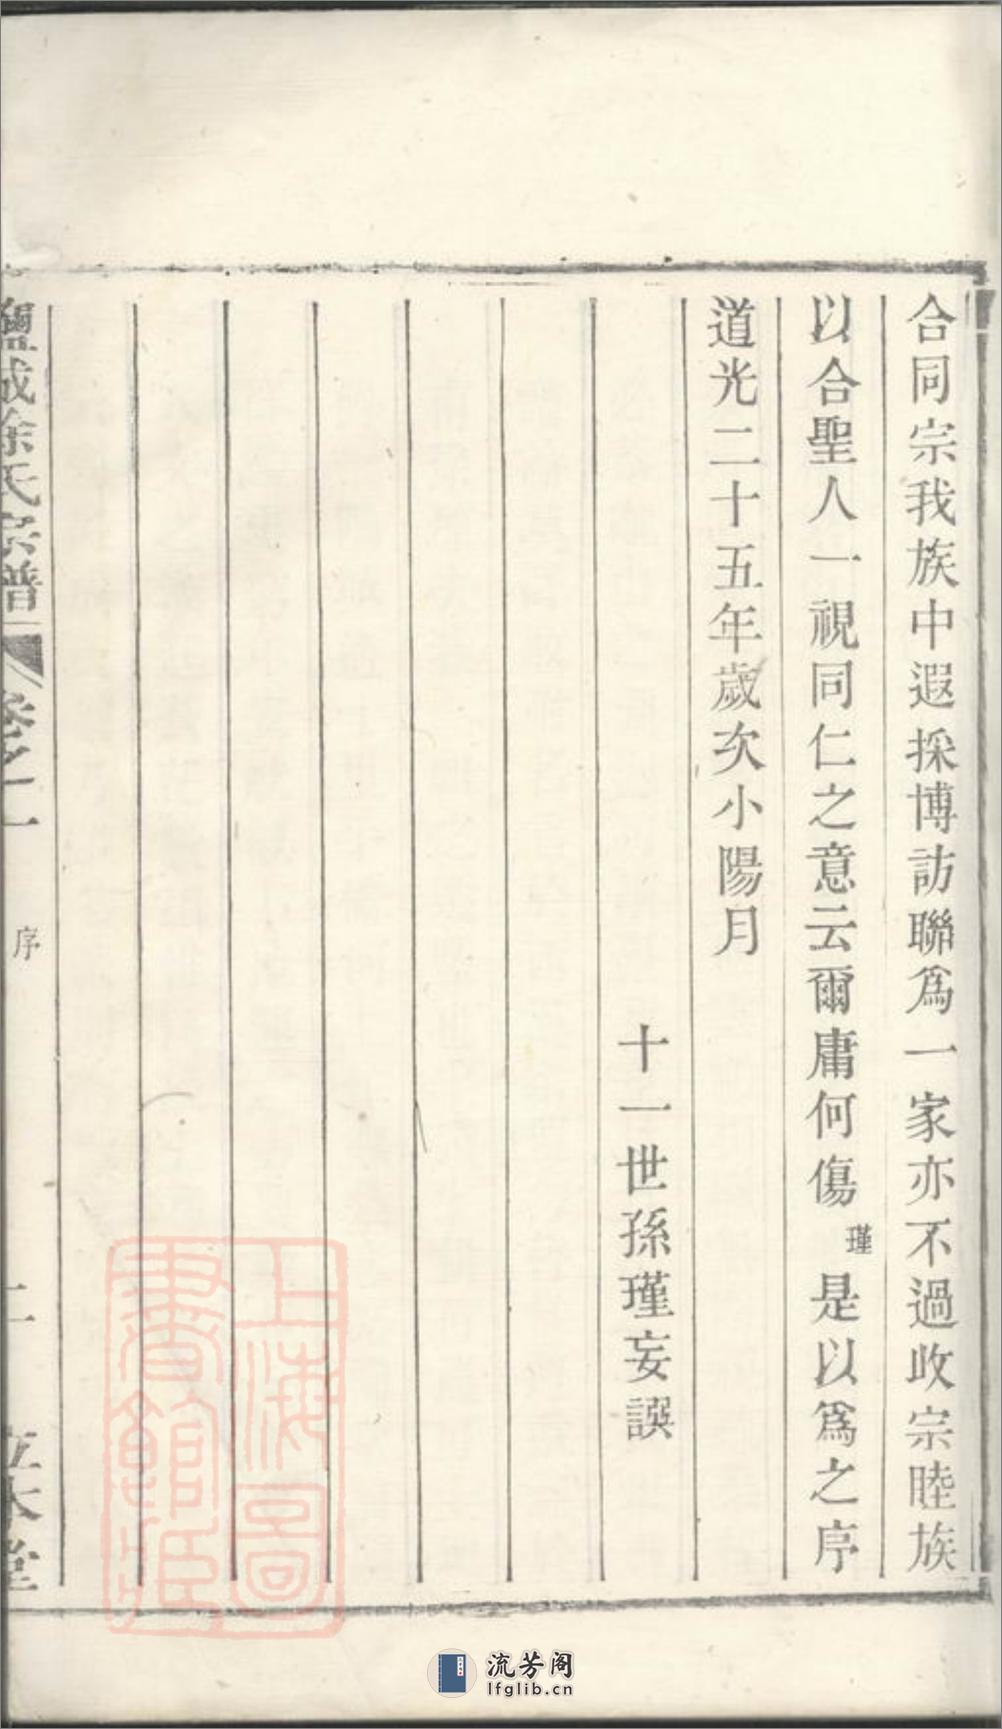 合同宗我族中遐採博訪聯爲一家亦不過收宗睦族
以合聖人一視同仁之意云爾庸何傷瑾是以爲之序
道光二十五年歲次小陽月
十一世孫瑾妄譔
鹽城徐氏宗譜
卷之一
序
二
立本堂
上海圖書館藏
流芳阁
lfglib.cn